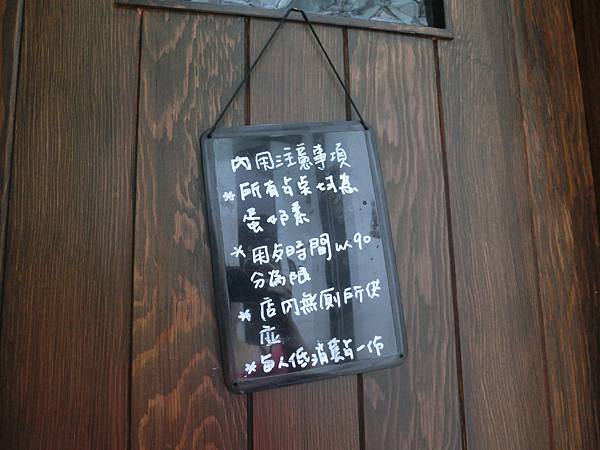 內用注意事項
*所有点桌均為
蛋奶素
*用歺時間以90
分為限
*店內無廁所供
應
*每人低消點一份